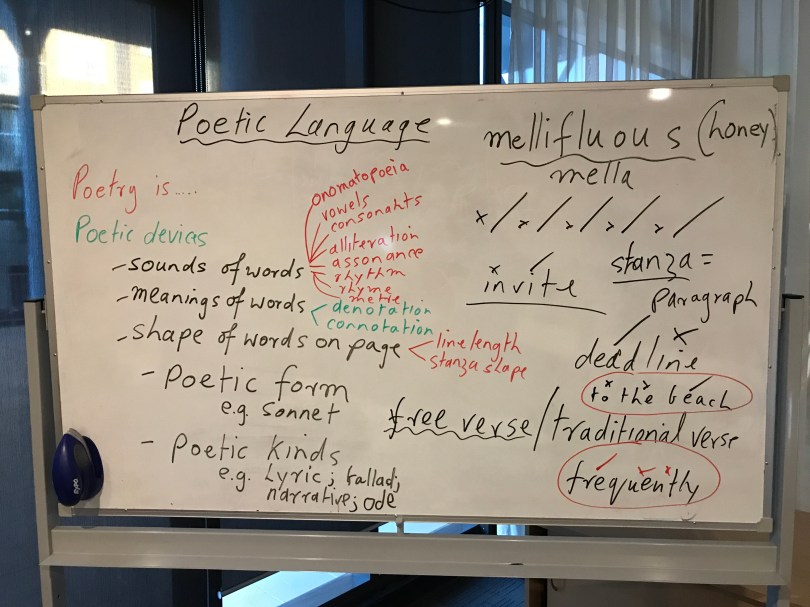 Poetic Language
Poetry is.....
Poetic devices
- sounds of words
onomatopoeia
vowels
consonants
alliteration
assonance
rhythm
rhyme
metre
- meanings of words
denotation
connotation
- shape of words on page
line length
stanza shape
- Poetic form
e.g. sonnet
- Poetic Kinds
e.g. Lyric; ballad;
narrative; ode
mellifluous (honey)
mella
x / x / x / x / x /
x /
invite
stanza =
paragraph
/ x
deadline
x x /
to the beach
free verse / traditional verse
/ x x
frequently